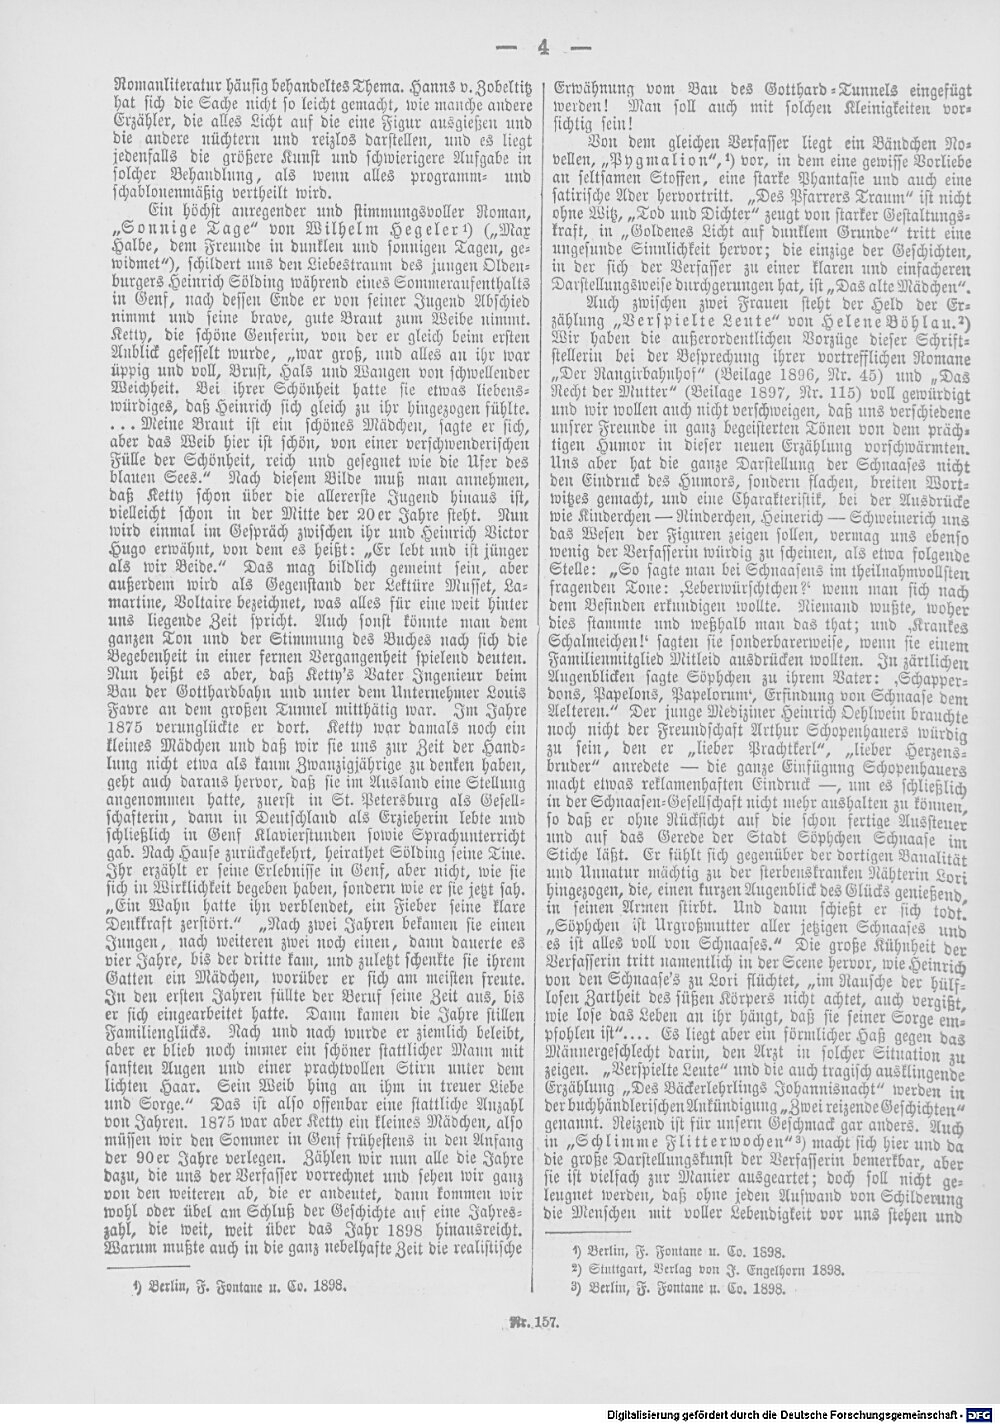 — 4 —
Romanliteratur häufig behandeltes Thema. Hanns v. Zobeltitz
hat sich die Sache nicht so leicht gemacht, wie manche andere
Erzähler, die alles Licht auf die eine Figur ausgießen und
die andere nüchtern und reizlos darstellen, und es liegt
jedenfalls die größere Kunst und schwierigere Aufgabe in
solcher Behandlung, als wenn alles programm- und
schablonenmäßig vertheilt wird.
Ein höchst anregender und stimmungsvoller Roman,
„Sonnige Tage“ von Wilhelm Hegeler¹) („Max
Halbe, dem Freunde in dunklen und sonnigen Tagen, ge-
widmet“), schildert uns den Liebestraum des jungen Olden-
burgers Heinrich Sölding während eines Sommeraufenthalts
in Genf, nach dessen Ende er von seiner Jugend Abschied
nimmt und seine brave, gute Braut zum Weibe nimmt.
Ketty, die schöne Genferin, von der er gleich beim ersten
Anblick gefesselt wurde, „war groß, und alles an ihr war
üppig und voll, Brust, Hals und Wangen von schwellender
Weichheit. Bei ihrer Schönheit hatte sie etwas liebens-
würdiges, daß Heinrich sich gleich zu ihr hingezogen fühlte.
... Meine Braut ist ein schönes Mädchen, sagte er sich,
aber das Weib hier ist schön, von einer verschwenderischen
Fülle der Schönheit, reich und gesegnet wie die Ufer des
blauen Sees.“ Nach diesem Bilde muß man annehmen,
daß Ketty schon über die allererste Jugend hinaus ist,
vielleicht schon in der Mitte der 20er Jahre steht. Nun
wird einmal im Gespräch zwischen ihr und Heinrich Victor
Hugo erwähnt, von dem es heißt: „Er lebt und ist jünger
als wir Beide.“ Das mag bildlich gemeint sein, aber
außerdem wird als Gegenstand der Lektüre Musset, La-
martine, Voltaire bezeichnet, was alles für eine weit hinter
uns liegende Zeit spricht. Auch sonst könnte man dem
ganzen Ton und der Stimmung des Buches nach sich die
Begebenheit in einer fernen Vergangenheit spielend deuten.
Nun heißt es aber, daß Ketty's Vater Ingenieur beim
Bau der Gotthardbahn und unter dem Unternehmer Louis
Favre an dem großen Tunnel mitthätig war. Im Jahre
1875 verunglückte er dort. Ketty war damals noch ein
kleines Mädchen und daß wir sie uns zur Zeit der Hand-
lung nicht etwa als kaum Zwanzigjährige zu denken haben,
geht auch daraus hervor, daß sie im Ausland eine Stellung
angenommen hatte, zuerst in St. Petersburg als Gesell-
schafterin, dann in Deutschland als Erzieherin lebte und
schließlich in Genf Klavierstunden sowie Sprachunterricht
gab. Nach Hause zurückgekehrt, heirathet Sölding seine Tine.
Ihr erzählt er seine Erlebnisse in Genf, aber nicht, wie sie
sich in Wirklichkeit begeben haben, sondern wie er sie jetzt sah.
„Ein Wahn hatte ihn verblendet, ein Fieber seine klare
Denkkraft zerstört.“ „Nach zwei Jahren bekamen sie einen
Jungen, nach weiteren zwei noch einen, dann dauerte es
vier Jahre, bis der dritte kam, und zuletzt schenkte sie ihrem
Gatten ein Mädchen, worüber er sich am meisten freute.
In den ersten Jahren füllte der Beruf seine Zeit aus, bis
er sich eingearbeitet hatte. Dann kamen die Jahre stillen
Familienglücks. Nach und nach wurde er ziemlich beleibt,
aber er blieb noch immer ein schöner stattlicher Mann mit
sanften Augen und einer prachtvollen Stirn unter dem
lichten Haar. Sein Weib hing an ihm in treuer Liebe
und Sorge.“ Das ist also offenbar eine stattliche Anzahl
von Jahren. 1875 war aber Ketty ein kleines Mädchen, also
müssen wir den Sommer in Genf frühestens in den Anfang
der 90er Jahre verlegen. Zählen wir nun alle die Jahre
dazu, die uns der Verfasser vorrechnet und sehen wir ganz
von den weiteren ab, die er andeutet, dann kommen wir
wohl oder übel am Schluß der Geschichte auf eine Jahres-
zahl, die weit, weit über das Jahr 1898 hinausreicht.
Warum mußte auch in die ganz nebelhafte Zeit die realistische
¹) Berlin, F. Fontane u. Co. 1898.
Erwähnung vom Bau des Gotthard-Tunnels eingefügt
werden! Man soll auch mit solchen Kleinigkeiten vor-
sichtig sein!
Von dem gleichen Verfasser liegt ein Bändchen No-
vellen, „Pygmalion“,¹) vor, in dem eine gewisse Vorliebe
an seltsamen Stoffen, eine starke Phantasie und auch eine
satirische Ader hervortritt. „Des Pfarrers Traum“ ist nicht
ohne Witz, „Tod und Dichter“ zeugt von starker Gestaltungs-
kraft, in „Goldenes Licht auf dunklem Grunde“ tritt eine
ungesunde Sinnlichkeit hervor; die einzige der Geschichten,
in der sich der Verfasser zu einer klaren und einfacheren
Darstellungsweise durchgerungen hat, ist „Das alte Mädchen“.
Auch zwischen zwei Frauen steht der Held der Er-
zählung „Verspielte Leute“ von Helene Böhlau.²)
Wir haben die außerordentlichen Vorzüge dieser Schrift-
stellerin bei der Besprechung ihrer vortrefflichen Romane
„Der Rangirbahnhof“ (Beilage 1896, Nr. 45) und „Das
Recht der Mutter“ (Beilage 1897, Nr. 115) voll gewürdigt
und wir wollen auch nicht verschweigen, daß uns verschiedene
unsrer Freunde in ganz begeisterten Tönen von dem präch-
tigen Humor in dieser neuen Erzählung vorschwärmten.
Uns aber hat die ganze Darstellung der Schnaases nicht
den Eindruck des Humors, sondern flachen, breiten Wort-
witzes gemacht, und eine Charakteristik, bei der Ausdrücke
wie Kinderchen — Rinderchen, Heinerich — Schweinerich uns
das Wesen der Figuren zeigen sollen, vermag uns ebenso
wenig der Verfasserin würdig zu scheinen, als etwa folgende
Stelle: „So sagte man bei Schnaasens im theilnahmvollsten
fragenden Tone: ‚Leberwürschtchen?‘ wenn man sich nach
dem Befinden erkundigen wollte. Niemand wußte, woher
dies stammte und weßhalb man das that; und ‚Krankes
Schalmeichen!‘ sagten sie sonderbarerweise, wenn sie einem
Familienmitglied Mitleid ausdrücken wollten. In zärtlichen
Augenblicken sagte Söphchen zu ihrem Vater: ‚Schapper-
dons, Papelons, Papelorum‘, Erfindung von Schnaase dem
Aelteren.“ Der junge Mediziner Heinrich Oehlwein brauchte
noch nicht der Freundschaft Arthur Schopenhauers würdig
zu sein, den er „lieber Prachtkerl“, „lieber Herzens-
bruder“ anredete — die ganze Einfügung Schopenhauers
macht etwas reklamenhaften Eindruck —, um es schließlich
in der Schnaasen-Gesellschaft nicht mehr aushalten zu können,
so daß er ohne Rücksicht auf die schon fertige Aussteuer
und auf das Gerede der Stadt Söphchen Schnaase im
Stiche läßt. Er fühlt sich gegenüber der dortigen Banalität
und Unnatur mächtig zu der sterbenskranken Nähterin Lori
hingezogen, die, einen kurzen Augenblick des Glücks genießend,
in seinen Armen stirbt. Und dann schießt er sich todt.
„Söphchen ist Urgroßmutter aller jetzigen Schnaases und
es ist alles voll von Schnaases.“ Die große Kühnheit der
Verfasserin tritt namentlich in der Scene hervor, wie Heinrich
von den Schnaase's zu Lori flüchtet, „im Rausche der hülf-
losen Zartheit des süßen Körpers nicht achtet, auch vergißt,
wie lose das Leben an ihr hängt, daß sie seiner Sorge em-
pfohlen ist“.... Es liegt aber ein förmlicher Haß gegen das
Männergeschlecht darin, den Arzt in solcher Situation zu
zeigen. „Verspielte Leute“ und die auch tragisch ausklingende
Erzählung „Des Bäckerlehrlings Johannisnacht“ werden in
der buchhändlerischen Ankündigung „Zwei reizende Geschichten“
genannt. Reizend ist für unsern Geschmack gar anders. Auch
in „Schlimme Flitterwochen“³) macht sich hier und da
die große Darstellungskunst der Verfasserin bemerkbar, aber
sie ist vielfach zur Manier ausgeartet; doch soll nicht ge-
leugnet werden, daß ohne jeden Aufwand von Schilderung
die Menschen mit voller Lebendigkeit vor uns stehen und
¹) Berlin, F. Fontane u. Co. 1898.
²) Stuttgart, Verlag von J. Engelhorn 1898.
³) Berlin, F. Fontane u. Co. 1898.
Nr. 157.
Digitalisierung gefördert durch die Deutsche Forschungsgemeinschaft - DFG